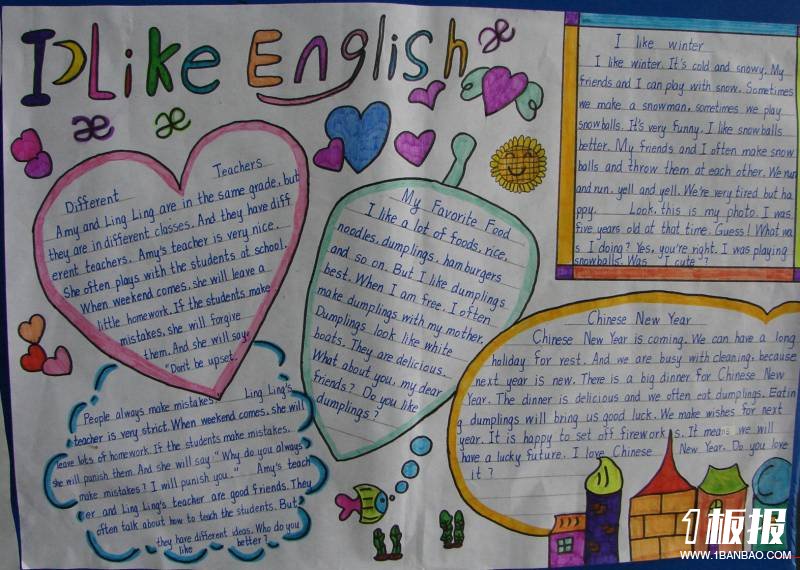 I Like English
æ
æ
æ
Different Teachers
Amy and Ling Ling are in the same grade, but
they are in different classes. And they have diff
erent teachers. Amy's teacher is very nice.
She often plays with the students at school.
When weekend comes, she will leave a
little homework. If the students make
mistakes, she will forgive
them. And she will say,
"Don't be upset.
People always make mistakes." Ling Ling's
teacher is very strict. When weekend comes, she will
leave lots of homework. If the students make mistakes,
she will punish them. And she will say "Why do you always
make mistakes? I will punish you." Amy's teach
er and Ling Ling's teacher are good friends. They
often talk about how to teach the students. But
they have different ideas. Who do you
like better?
My Favorite Food
I like a lot of foods, rice,
noodles, dumplings, hamburgers
and so on. But I like dumplings
best. When I am free, I often
make dumplings with my mother.
Dumplings look like white
boats. They are delicious.
What about you, my dear
friends? Do you like
dumplings?
I like winter
I like winter. It's cold and snowy. My
friends and I can play with snow. Sometimes
we make a snowman, sometimes we play
snowballs. It's very funny. I like snowballs
better. My friends and I often make snow
balls and throw them at each other. We run
and run, yell and yell. We're very tired but ha
ppy. Look, this is my photo. I was
five years old at that time. Guess! What wa
s I doing? Yes, you're right. I was playing
snowballs. Was I cute?
Chinese New Year
Chinese New Year is coming. We can have a long
holiday for rest. And we are busy with cleaning, because
next year is new. There is a big dinner for Chinese New
Year. The dinner is delicious and we often eat dumplings. Eatin
g dumplings will bring us good luck. We make wishes for next
year. It is happy to set off fireworks. It means we will
have a lucky future. I love Chinese New Year. Do you love
it?
1板报
WWW.1BANBAO.COM